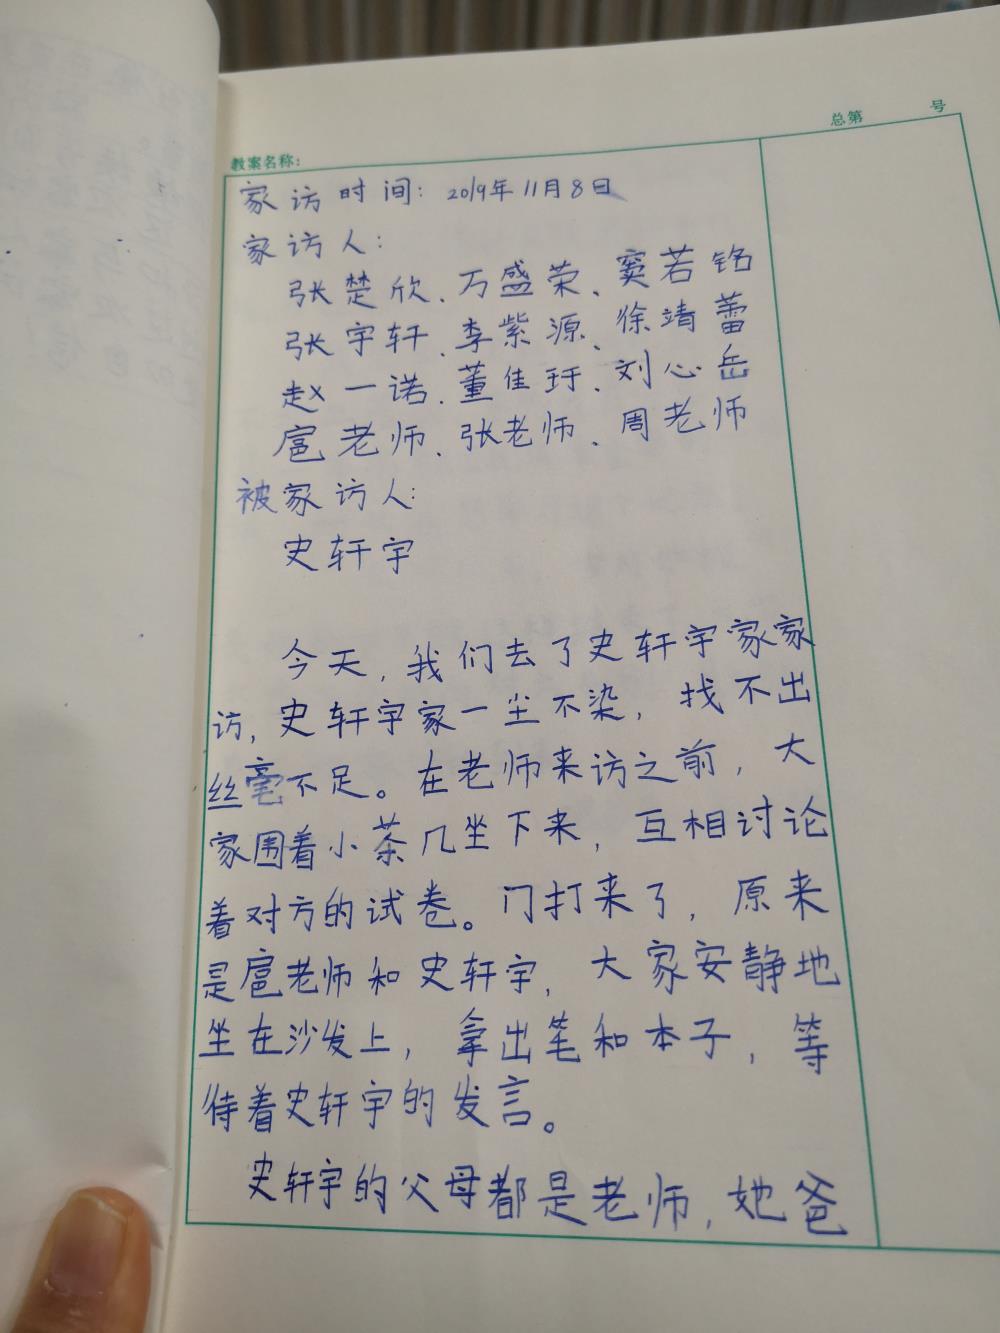 总第 号
教案名称:
家访时间: 2019年11月8日
家访人:
张楚欣、万盛荣、窦若铭
张宇轩、李紫源、徐靖蕾
赵一诺、董佳玗、刘心岳
扈老师、张老师、周老师
被家访人:
史轩宇
今天,我们去了史轩宇家家
访,史轩宇家一尘不染,找不出
丝毫不足。在老师来访之前,大
家围着小茶几坐下来,互相讨论
着对方的试卷。门打来了,原来
是扈老师和史轩宇,大家安静地
坐在沙发上,拿出笔和本子,等
待着史轩宇的发言。
史轩宇的父母都是老师,她爸